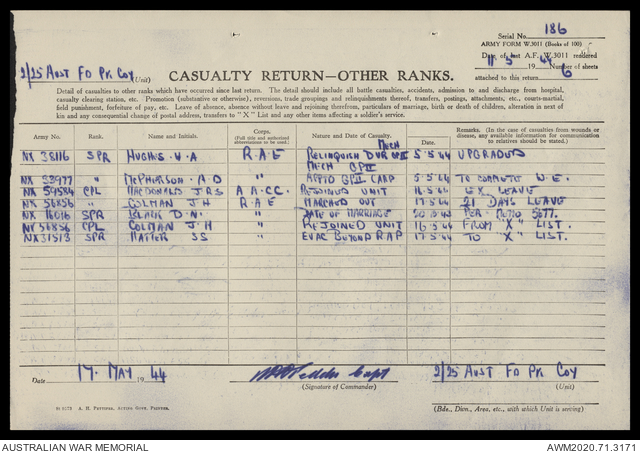 Serial No. 186
ARMY FORM W.3011 (Books of 100)
Date of last A.F. W.3011 rendered
11 5 1944 Number of sheets
attached to this return 6
2/25 AUST FD PK COY (Unit)
CASUALTY RETURN—OTHER RANKS.
Detail of casualties to other ranks which have occurred since last return. The detail should include all battle casualties, accidents, admission to and discharge from hospital,
casualty clearing station, etc. Promotion (substantive or otherwise), reversions, trade groupings and relinquishments thereof, transfers, postings, attachments, etc., courts-martial,
field punishment, forfeiture of pay, etc. Leave of absence, absence without leave and rejoining therefrom, particulars of marriage, birth or death of children, alteration in next of
kin and any consequential change of postal address, transfers to "X" List and any other items affecting a soldier's service.
Army No. Rank. Name and Initials. Corps. (Full title and authorized abbreviations to be used.) Nature and Date of Casualty. Date. Remarks. (In the case of casualties from wounds or disease, any available information for communication to relatives should be stated.)
NX 38116 SPR HUGHES W.A RAE RELINQUISH DVR MECH GPIII 5.5.44 UPGRADED
MECH GPII
NX 53977 " McPHERSON A D " APPTD GPII CARP 5.5.44 TO COMPLETE W.E.
NX 59584 CPL MACDONALD JRS A A.CC. REJOINED UNIT 16.5.44 EX LEAVE
NX 56856 " COLMAN J H RAE MARCHED OUT 17.5.44 21 DAYS LEAVE
NX 16016 SPR BLACK D.N. " DATE OF MARRIAGE 20.10.43 PER MEMO 5677.
NX 56856 CPL COLMAN J.H " REJOINED UNIT 16.5.44 FROM "X" LIST.
NX 31513 SPR MATTER SS " EVAC BEYOND RAP 17.5.44 TO "X" LIST
Date 17. MAY 1944 Capt 2/25 AUST FD PK COY
(Signature of Commander) (Unit)
A. H. PETTIFER, ACTING GOVT. PRINTER.
(Bde., Divn., Area, etc., with which Unit is serving)
AUSTRALIAN WAR MEMORIAL AWM2020.71.3171